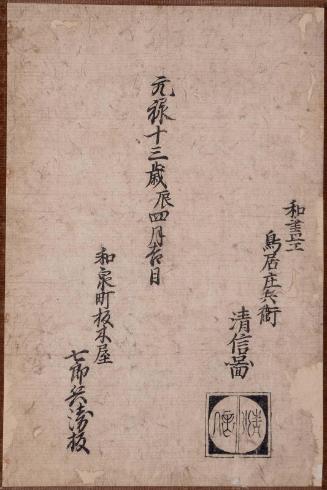 和畫工
鳥居庄兵衛
清信圖
清信
元禄十三歳辰四月吉日
和泉町板木屋
七郎兵衛板